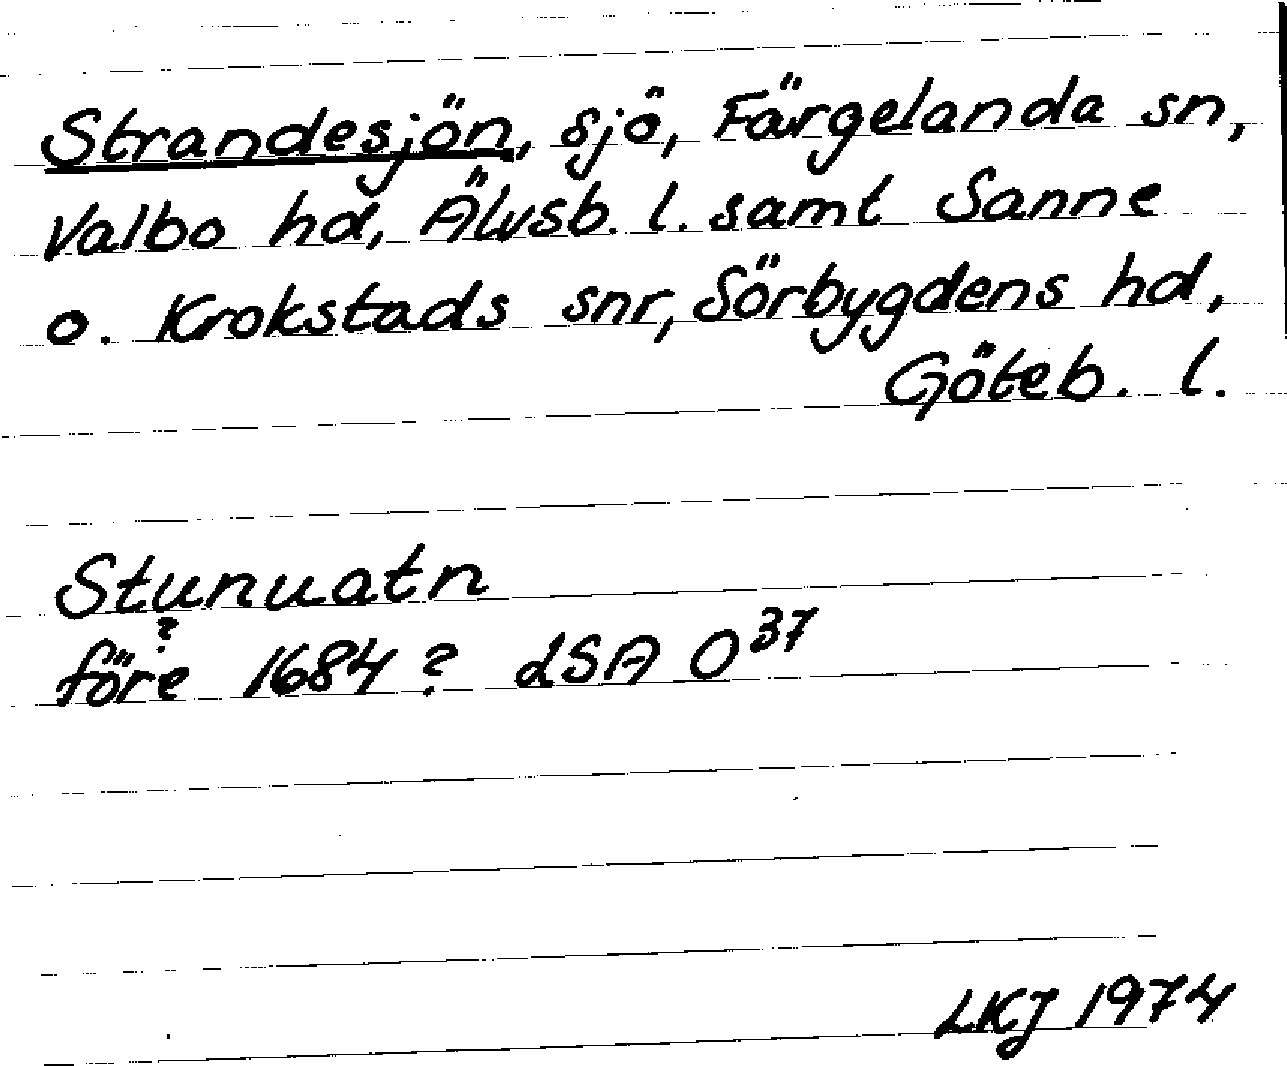 Strandesjön, sjö, Färgelanda sn,
Valbo hd, Älvsb. l. samt Sanne
o. Krokstads snr, Sörbygdens hd,
Göteb. l.
Stunuatn
?
före 1684? LSA O³⁷
LKJ 1974